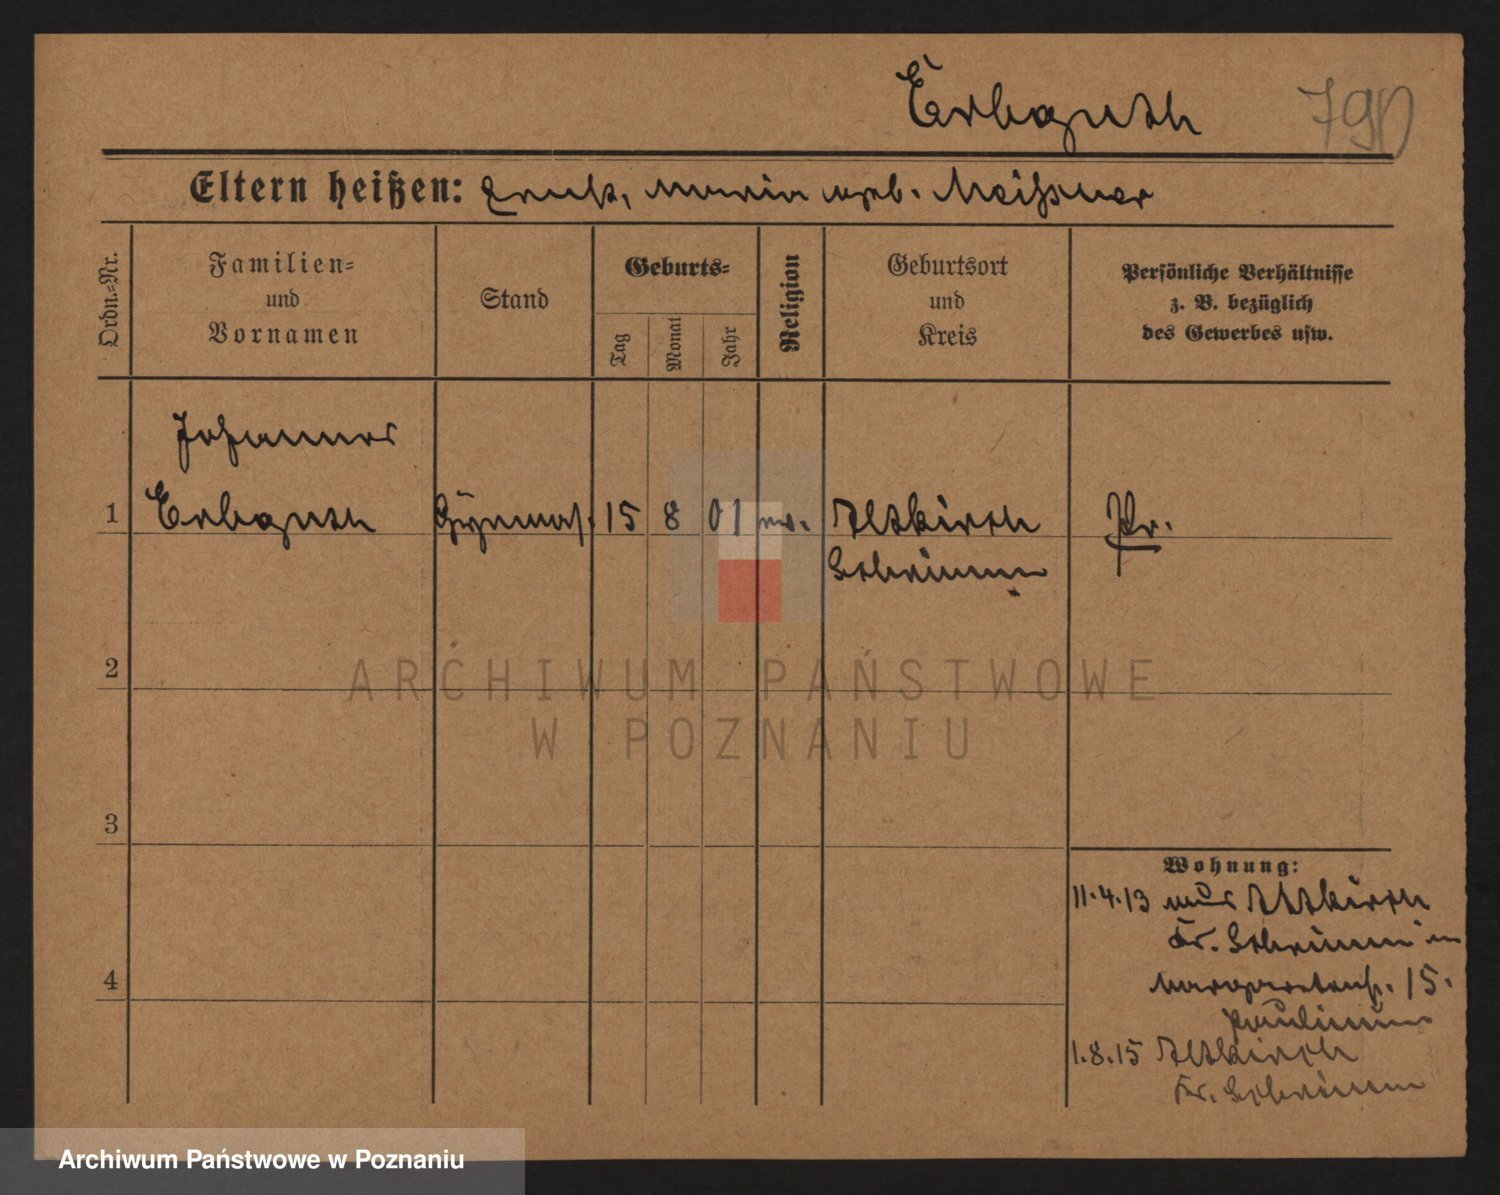 Erbguth 790
Eltern heißen: Ernst, Marie geb. Meißner
Ordn.=Nr.
Familien=
und
Vornamen
Stand
Geburts=
Tag
Monat
Jahr
Religion
Geburtsort
und
Kreis
Persönliche Verhältnisse
z. B. bezüglich
des Gewerbes usw.
Johannes
1 Erbguth Gymnas. 15 8 01 ev. Altkirch Pr.
Schrimm
2
3
4
Wohnung:
11.4.13 aus Altkirch
Kr. Schrimm in
Margaretenstr. 15.
Paulinum
1.8.15 Altkirch
Kr. Schrimm
ARCHIWUM PAŃSTWOWE
W POZNANIU
Archiwum Państwowe w Poznaniu